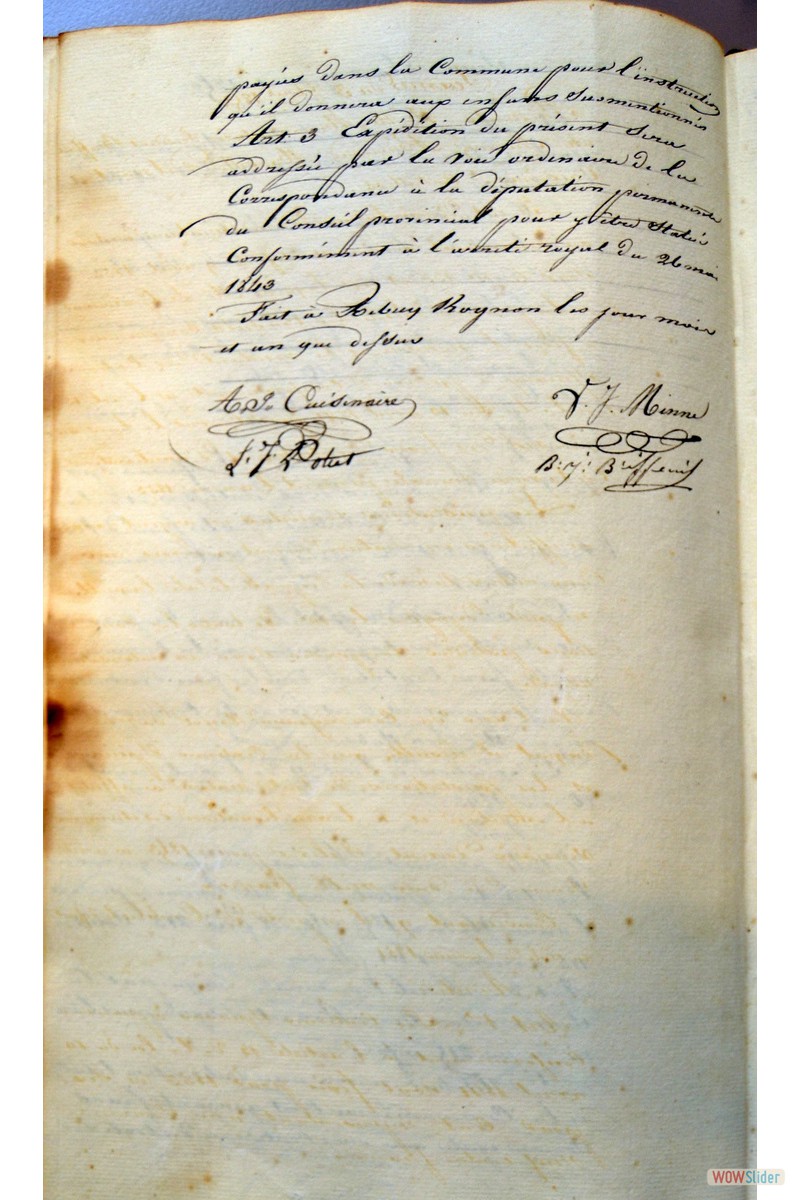 payées dans la Commune pour l'instruction
qu'il donnera aux enfans susmentionnés
Art 3 Expédition du présent sera
addressée par la voie ordinaire de la
Correspondance à la députation permanente
du Conseil provincial pour y être statué
Conformément à l'arreté royal du 26 mai
1843
Fait à Rebecq Rognon les jour mois
et an que dessus
A. J. Cuisenaire
V. J. Minne
L. J.
B. J.
WOWSlider